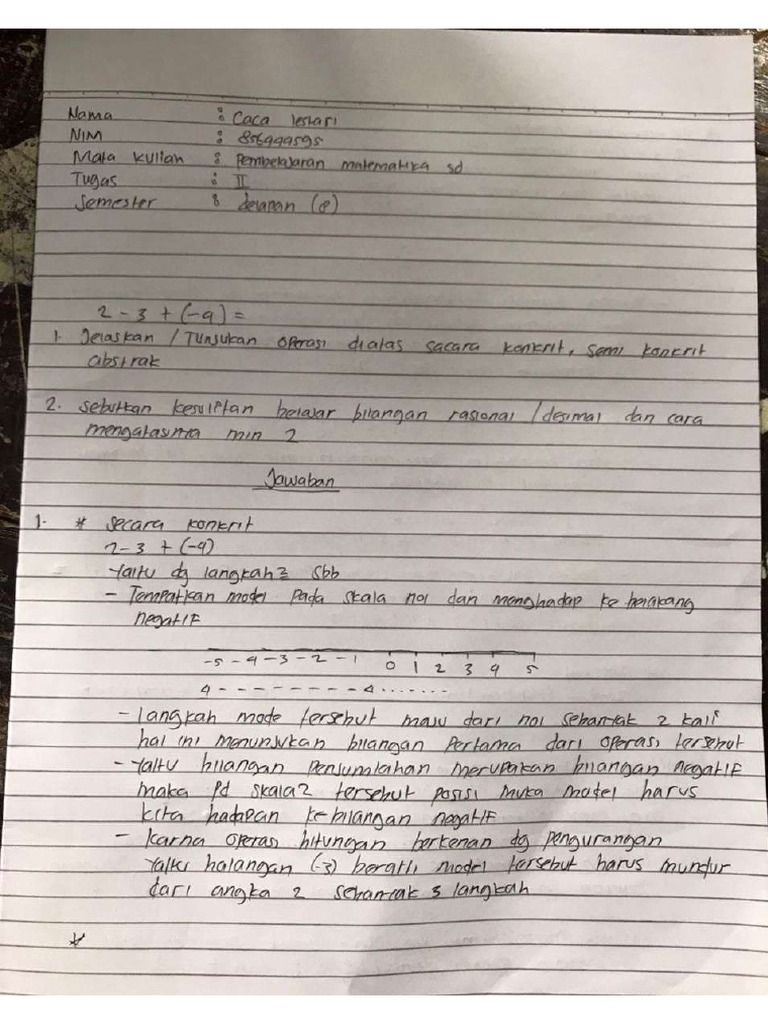 Nama : Caca lestari
NIM : 856999595
Mata kuliah : Pembelajaran matematika sd
Tugas : II
Semester : delapan (8)
2 - 3 + (-4) =
1. Jelaskan / Tunjukan operasi diatas sacara konkrit, semi konkrit
abstrak
2. sebutkan kesulitan belajar bilangan rasional / desimal dan cara
mengatasinya min 2
Jawaban
1. * Secara konkrit
2 - 3 + (-4)
Yaitu dg langkah2 sbb
- Tempatkan model pada skala nol dan menghadap ke belakang
negatif
-5 -4 -3 -2 -1 0 1 2 3 4 5
4 - - - - - - - - 4 .......
- langkah mode tersebut maju dari nol sebanyak 2 kali
hal ini menunjukan bilangan pertama dari operasi tersebut
- Yaitu bilangan penjumlahan merupakan bilangan negatif
maka pd skala2 tersebut posisi muka model harus
kita hadapan ke bilangan negatif
- karna operasi hitungan berkenan dg pengurangan
Yaitu halangan (-3) berarti model tersebut harus mundur
dari angka 2 sebanyak 3 langkah
*